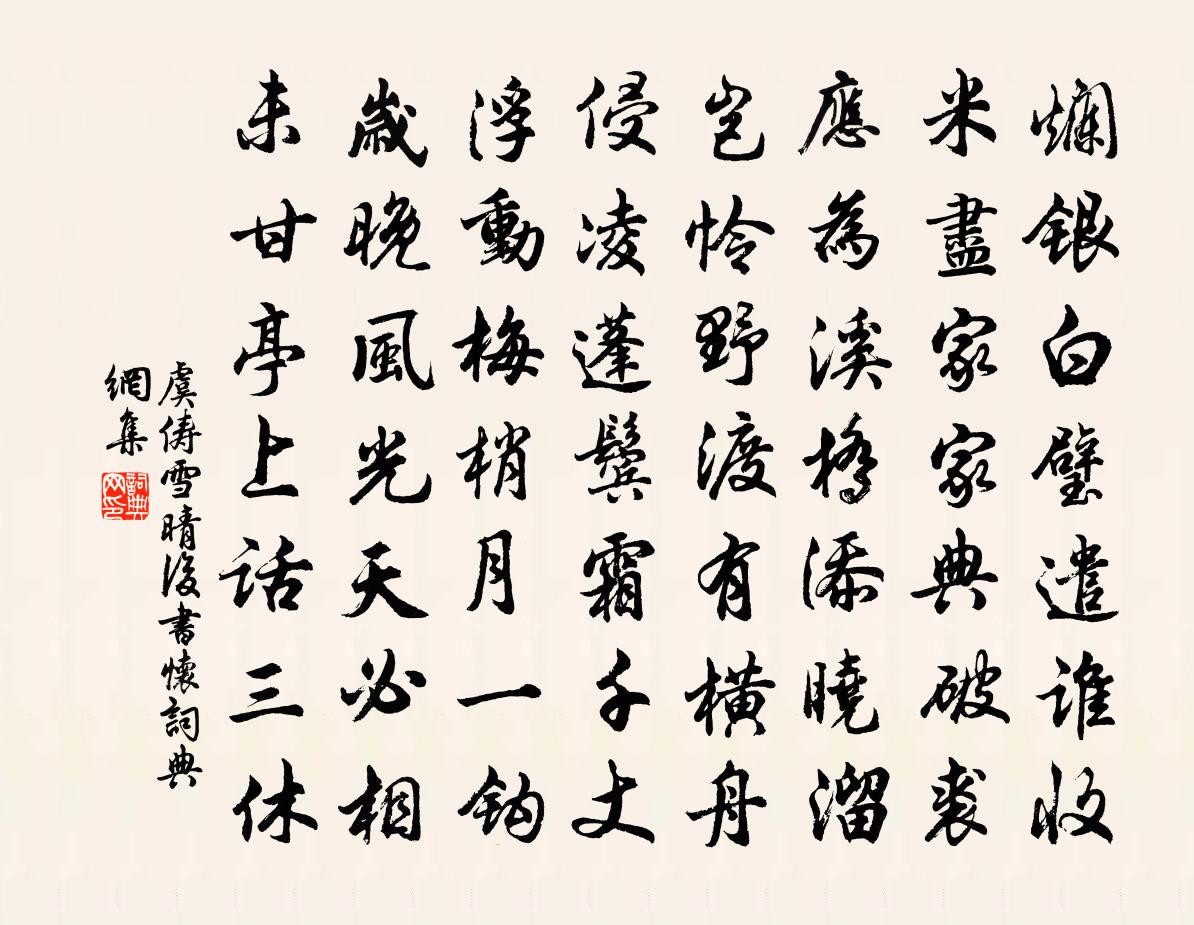 爛銀白璧遣誰收
米盡家家典破裘
應為溪橋添曉溜
豈怜野渡有橫舟
侵凌蓬鬢霜千丈
浮動梅梢月一鈎
歲晚風光天必相
未甘亭上話三休
虞儔雪晴後書懷詞典
網集
詞典
网印